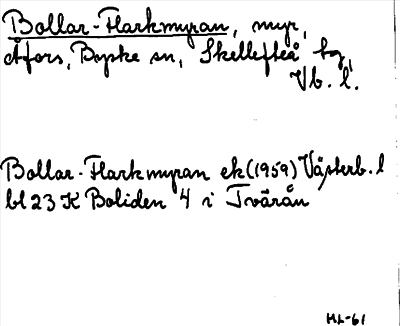 Bollar-Flarkmyran, myr,
Åfors, Bopke sn, Skellefteå kg,
Vb. l.
Bollar-Flarkmyran ek(1959) Västerb. l
bl 23 K Boliden 4 i Tvärån
HL-61